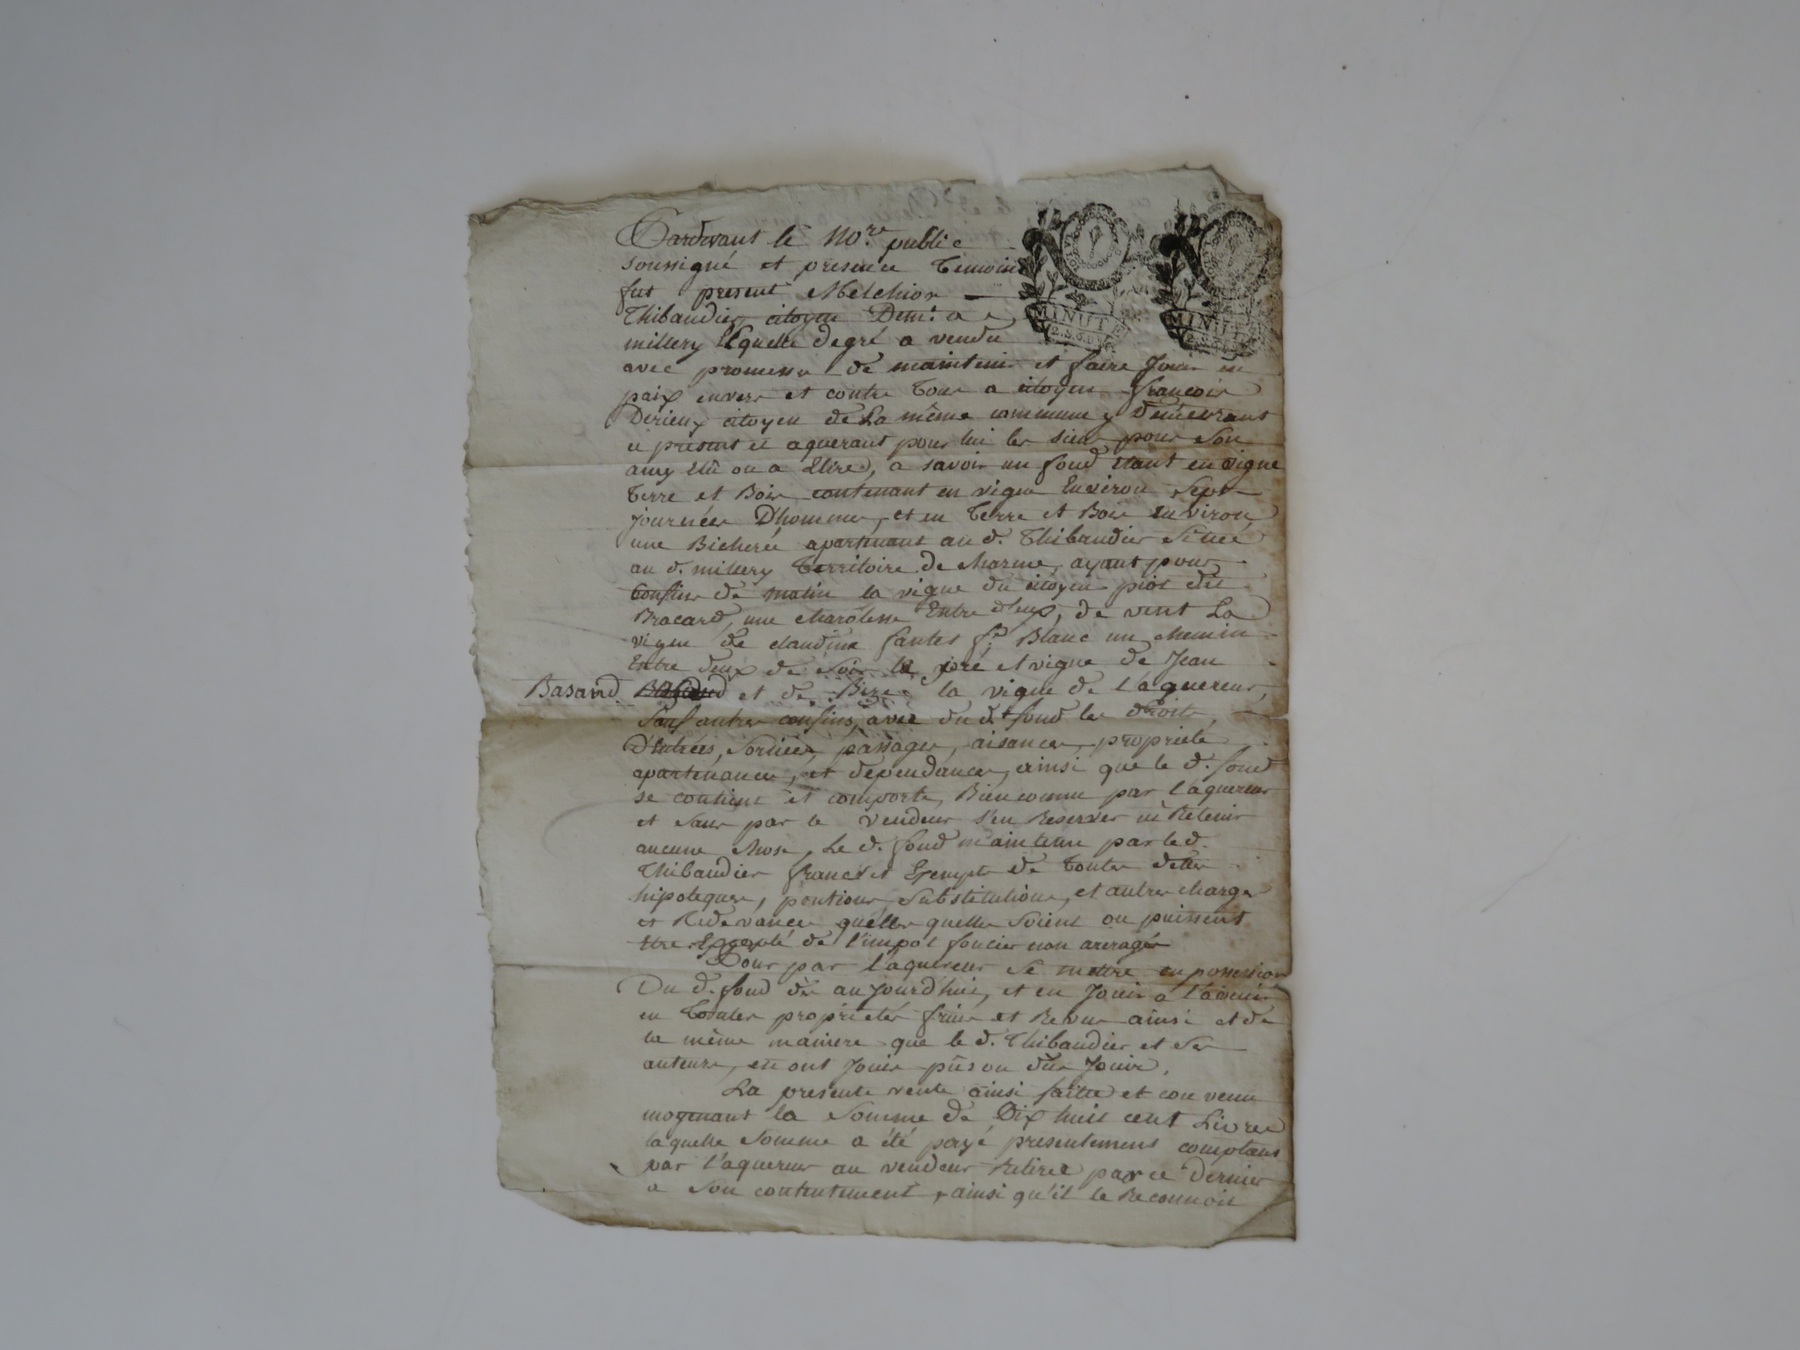 Pardevant le no.re public
soussigné et presence Temoins
fut present Melchior
Thibaudier citoyen Dem.t a
millery lequelle degré a vendu
avec promesse de maintenir et faire Jouir en
paix envers et contre Tous a citoyen françois
Derieux citoyen de La même commune y demeurant
ci présent et aquerant pour lui les siens pour Son
amy Elû ou a Elire, a savoir un fond étant en vigne
Terre et Bois contenant en vigne Environ Sept
Journées D'hommes, et en Terre et Bois Environ
une Bicherée apartenant au d. Thibaudier Située
au d. millery Territoire de ayant pour
Confins de matin la vigne du citoyen piot dit
Bracard, une charolesse Entre d'eux, de vent La
vigne de claudine f.e Blanc un chemin
Entre deux de Soir le pré et vigne de Jean
Basand et de Bize la vigne de l'aquereur,
Sauf autres confins, avec du d.t fond les droits,
D'Entrées, Sorties, passages, aisances, propriete
apartenances, et dependances, ainsi que le d. fond
se contient et comporte, Bien connu par l'aquereur
et sans par le vendeur s'en Reserver ni Retenir
aucune chose, Le d. fond maintenu par le d.
Thibaudier franc et Exempt de Toutes dettes
hipoteques, pentions, Substitutions, et autres charges
et Redevances quelles quelles Soient ou puissent
Etre Excepté de l'impot foncier non areragés
Pour par l'aquereur Se mettre en possession
Du d. fond dès aujourd'hui, et en Jouir a l'avenir
en Toutes propriétés fruis et Revenus ainsi et de
la même maniere que le d. Thibaudier et Ses
auteurs, en ont Jouis pûs ou dûs Jouir.
La presente vente ainsi faitte et convenu
moyenant la Somme de Dix huit cent Livres
laquelle Somme a été payé presentement comptant
par l'aquereur au vendeur Retirée par ce Dernier
a Son contentement, ainsi qu'il le Reconnoit
MINUTE
MINUTE